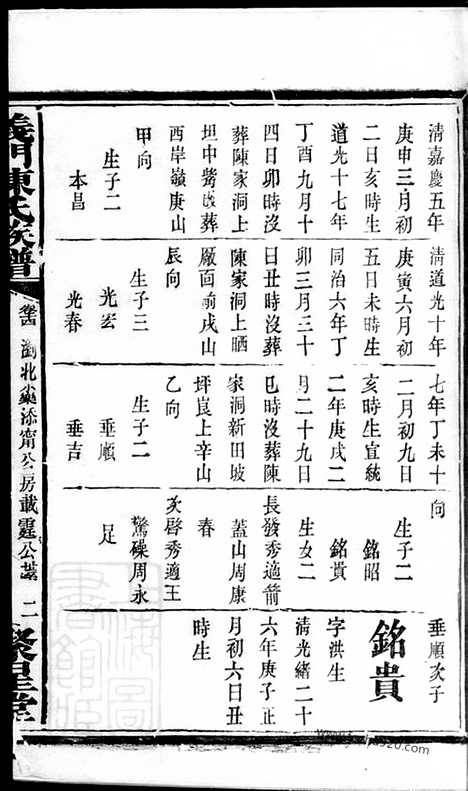 清嘉慶五年
庚申三月初
二日亥時生
道光十七年
丁酉九月十
四日卯時沒
葬陳家洞上
坦中嶅戊葬
西岸嶺庚山
甲向
生子二
本昌
清道光十年
庚寅六月初
五日未時生
同治六年丁
卯三月三十
日丑時沒葬
陳家洞上晒
厰面前戌山
辰向
生子三
光宏
光春
七年丁未十
二月初九日
亥時生宣統
二年庚戌二
月二十九日
巳時沒葬陳
家洞新田坡
坪崀上辛山
乙向
生子二
垂順
垂吉
向
生子二
銘昭
銘貴
生女二
長發秀適箭
蓋山周康
春
次啓秀適王
驚磜周永
足
垂順次子
銘貴
字洪生
清光緒二十
六年庚子正
月初六日丑
時生
義門陳氏族譜
瀏北 添甯公房載霆公 二
聚星堂